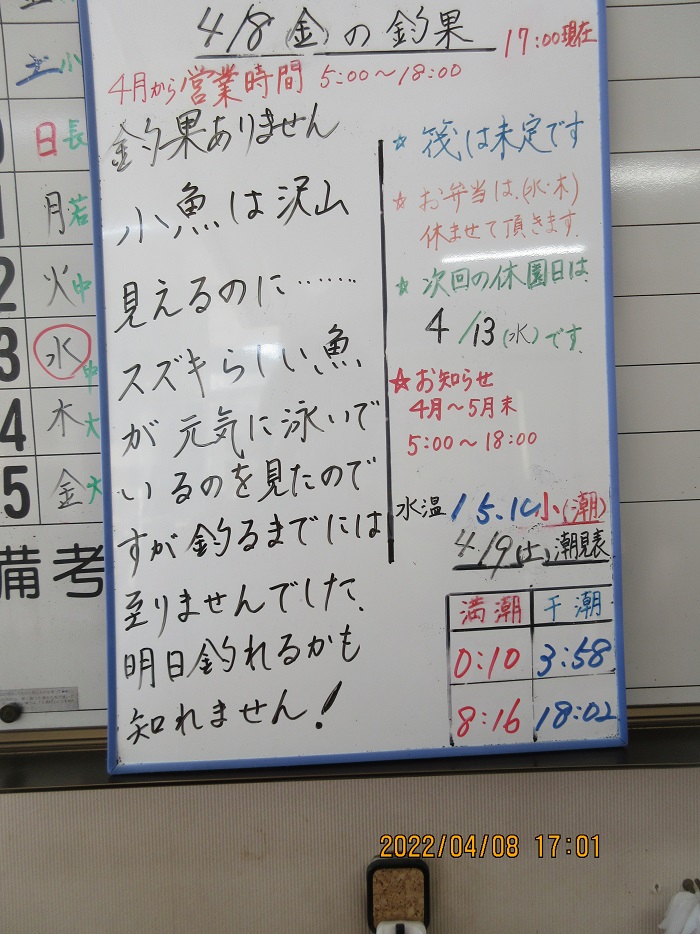 4/8(金)の釣果
17:00現在
4月から営業時間 5:00〜18:00
釣果ありません
小魚は沢山
見えるのに……
スズキらしい魚
が元気に泳いで
いるのを見たので
すが釣るまでには
至りませんでした、
明日釣れるかも
知れません!
☆筏は未定です
☆お弁当は、(水・木)
休ませて頂きます.
☆次回の休園日は、
4/13(水)です.
☆お知らせ
4月〜5月末
5:00〜18:00
水温 15.1C 小(潮)
4/9(土)潮見表
満潮 干潮
0:10 3:58
8:16 18:02
土 小
日 長
月 若
2 火 中
3 水 中
4 木 大
5 金 大
備考
2022/04/08 17:01